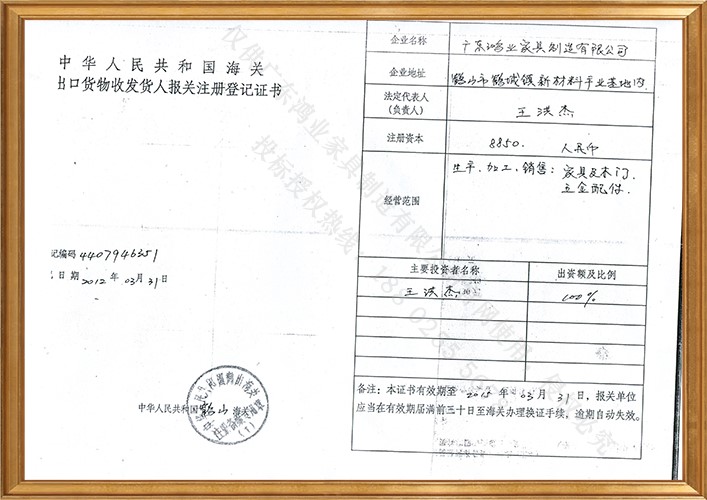 中华人民共和国海关
出口货物收发货人报关注册登记证书
记编码 4407946351
日期 2012 年 03 月 31 日
中华人民共和国鹤山海关
企业名称 广东鸿业家具制造有限公司
企业地址 鹤山市鹤城镇新材料产业基地内
法定代表人
(负责人) 王洪杰
注册资本 8850. 人民币
经营范围 生产、加工、销售：家具及木门、
五金配件.
主要投资者名称 出资额及比例
王洪杰 100%
备注：本证书有效期至 2015 年 03 月 31 日，报关单位
应当在有效期届满前三十日至海关办理换证手续，逾期自动失效。
仅供广东鸿业家具制造有限公司
投标授权热线